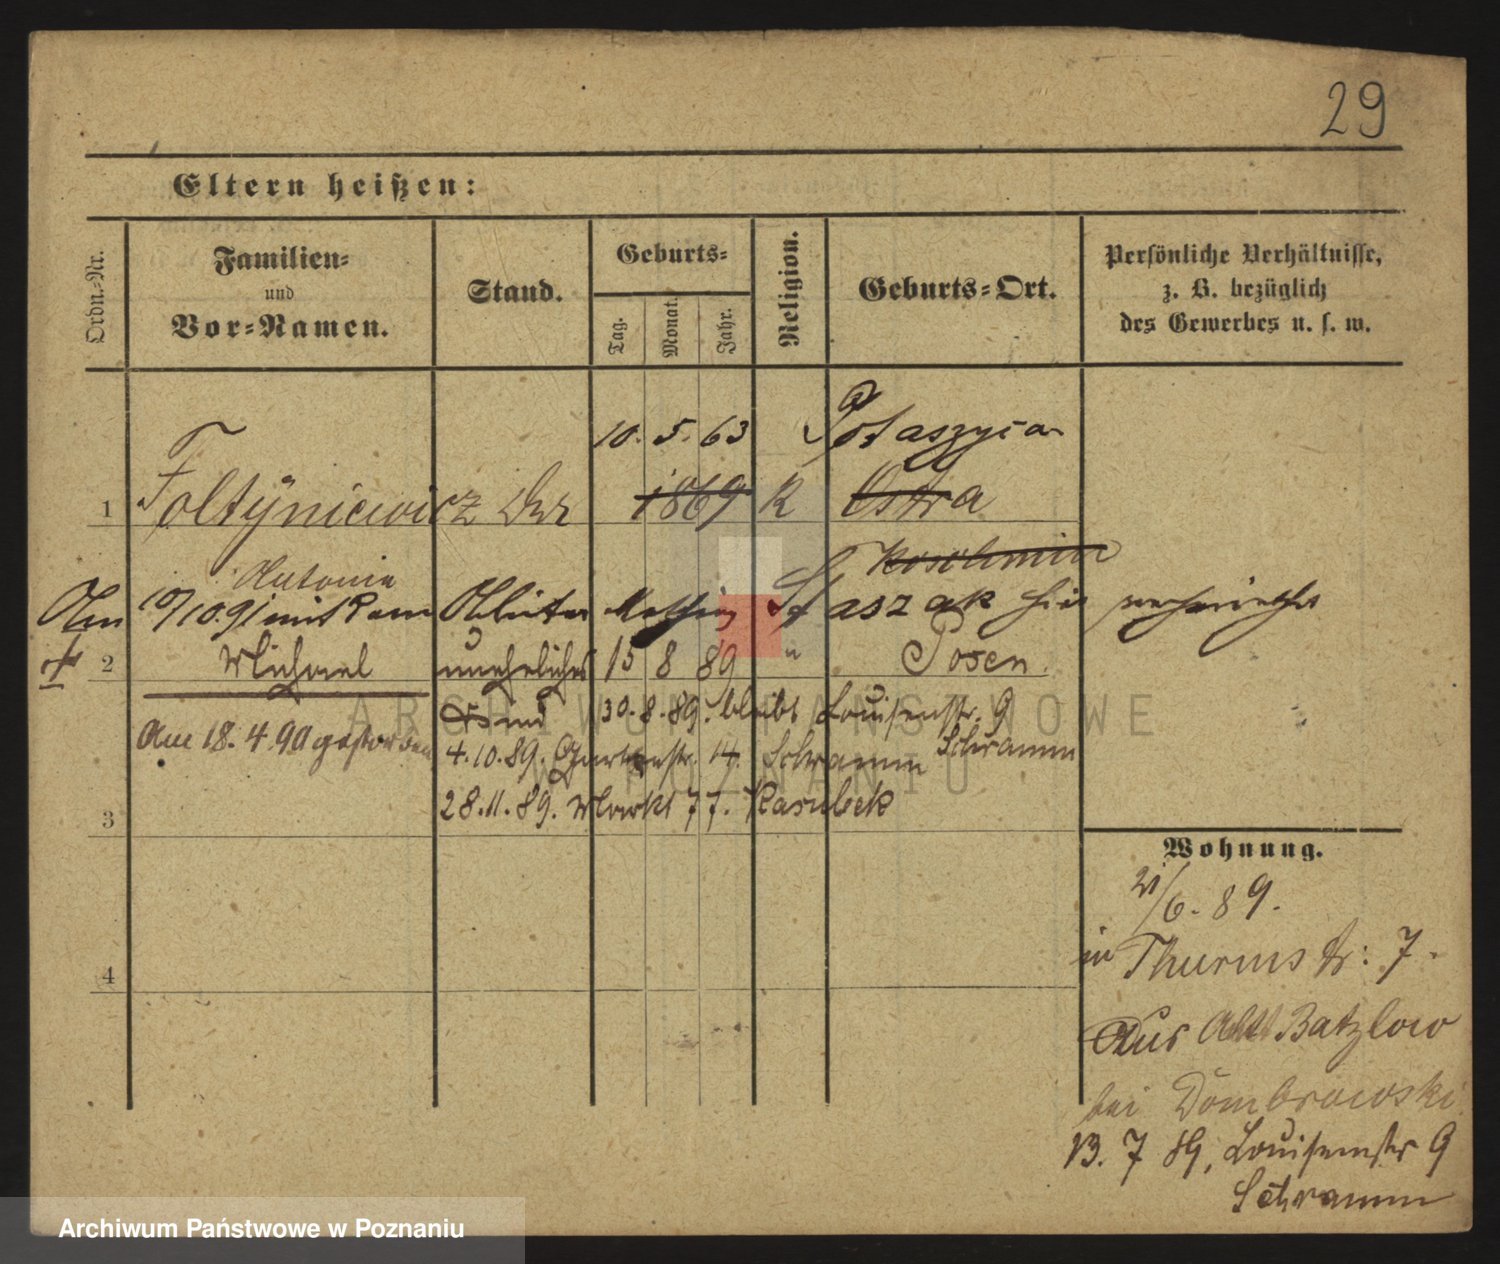 29
Eltern heißen:
Ordn.-Nr.
Familien-
und
Vor-Namen.
Stand.
Geburts-
Tag.
Monat.
Jahr.
Religion.
Geburts-Ort.
Persönliche Verhältnisse,
z. B. bezüglich
des Gewerbes u. s. w.
10. 5. 63 Potaszyca
1 Foltÿniewicz 1869 K Ostra
Antonia Koschmin
Am 10/10.91 mit dem Arbeiter Mathias Staszak hier verheirathet
† 2 Michael uneheliches 15 8 89 " Posen.
Kind 30.8.89. bleibt Louisenstr. 9
Am 18.4.90 gestorben
4.10.89. Gartenstr. 14. Schramm Schramm
28.11.89. Markt 77. Kasubek
3
Wohnung.
21/6.89.
in Thurmstr: 7.
4
Aus Alt Batzlow
bei Dombrowski
13. 7 89, Louisenstr 9
Schramm
ARCHIWUM PAŃSTWOWE
W POZNANIU
Archiwum Państwowe w Poznaniu